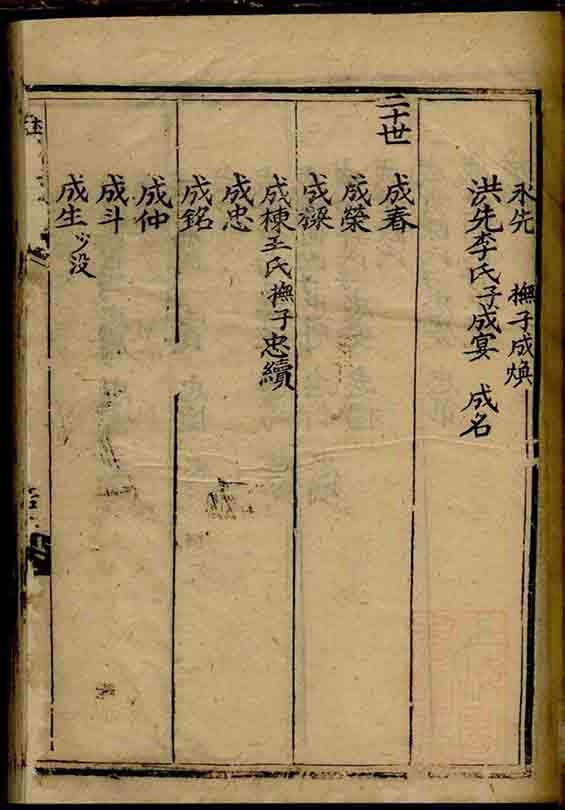 永先 撫子成煥
洪先李氏子成宴 成名
二十世
成春
成榮
成祿
成棟王氏撫子忠續
成忠
成銘
成仲
成斗
成生少没